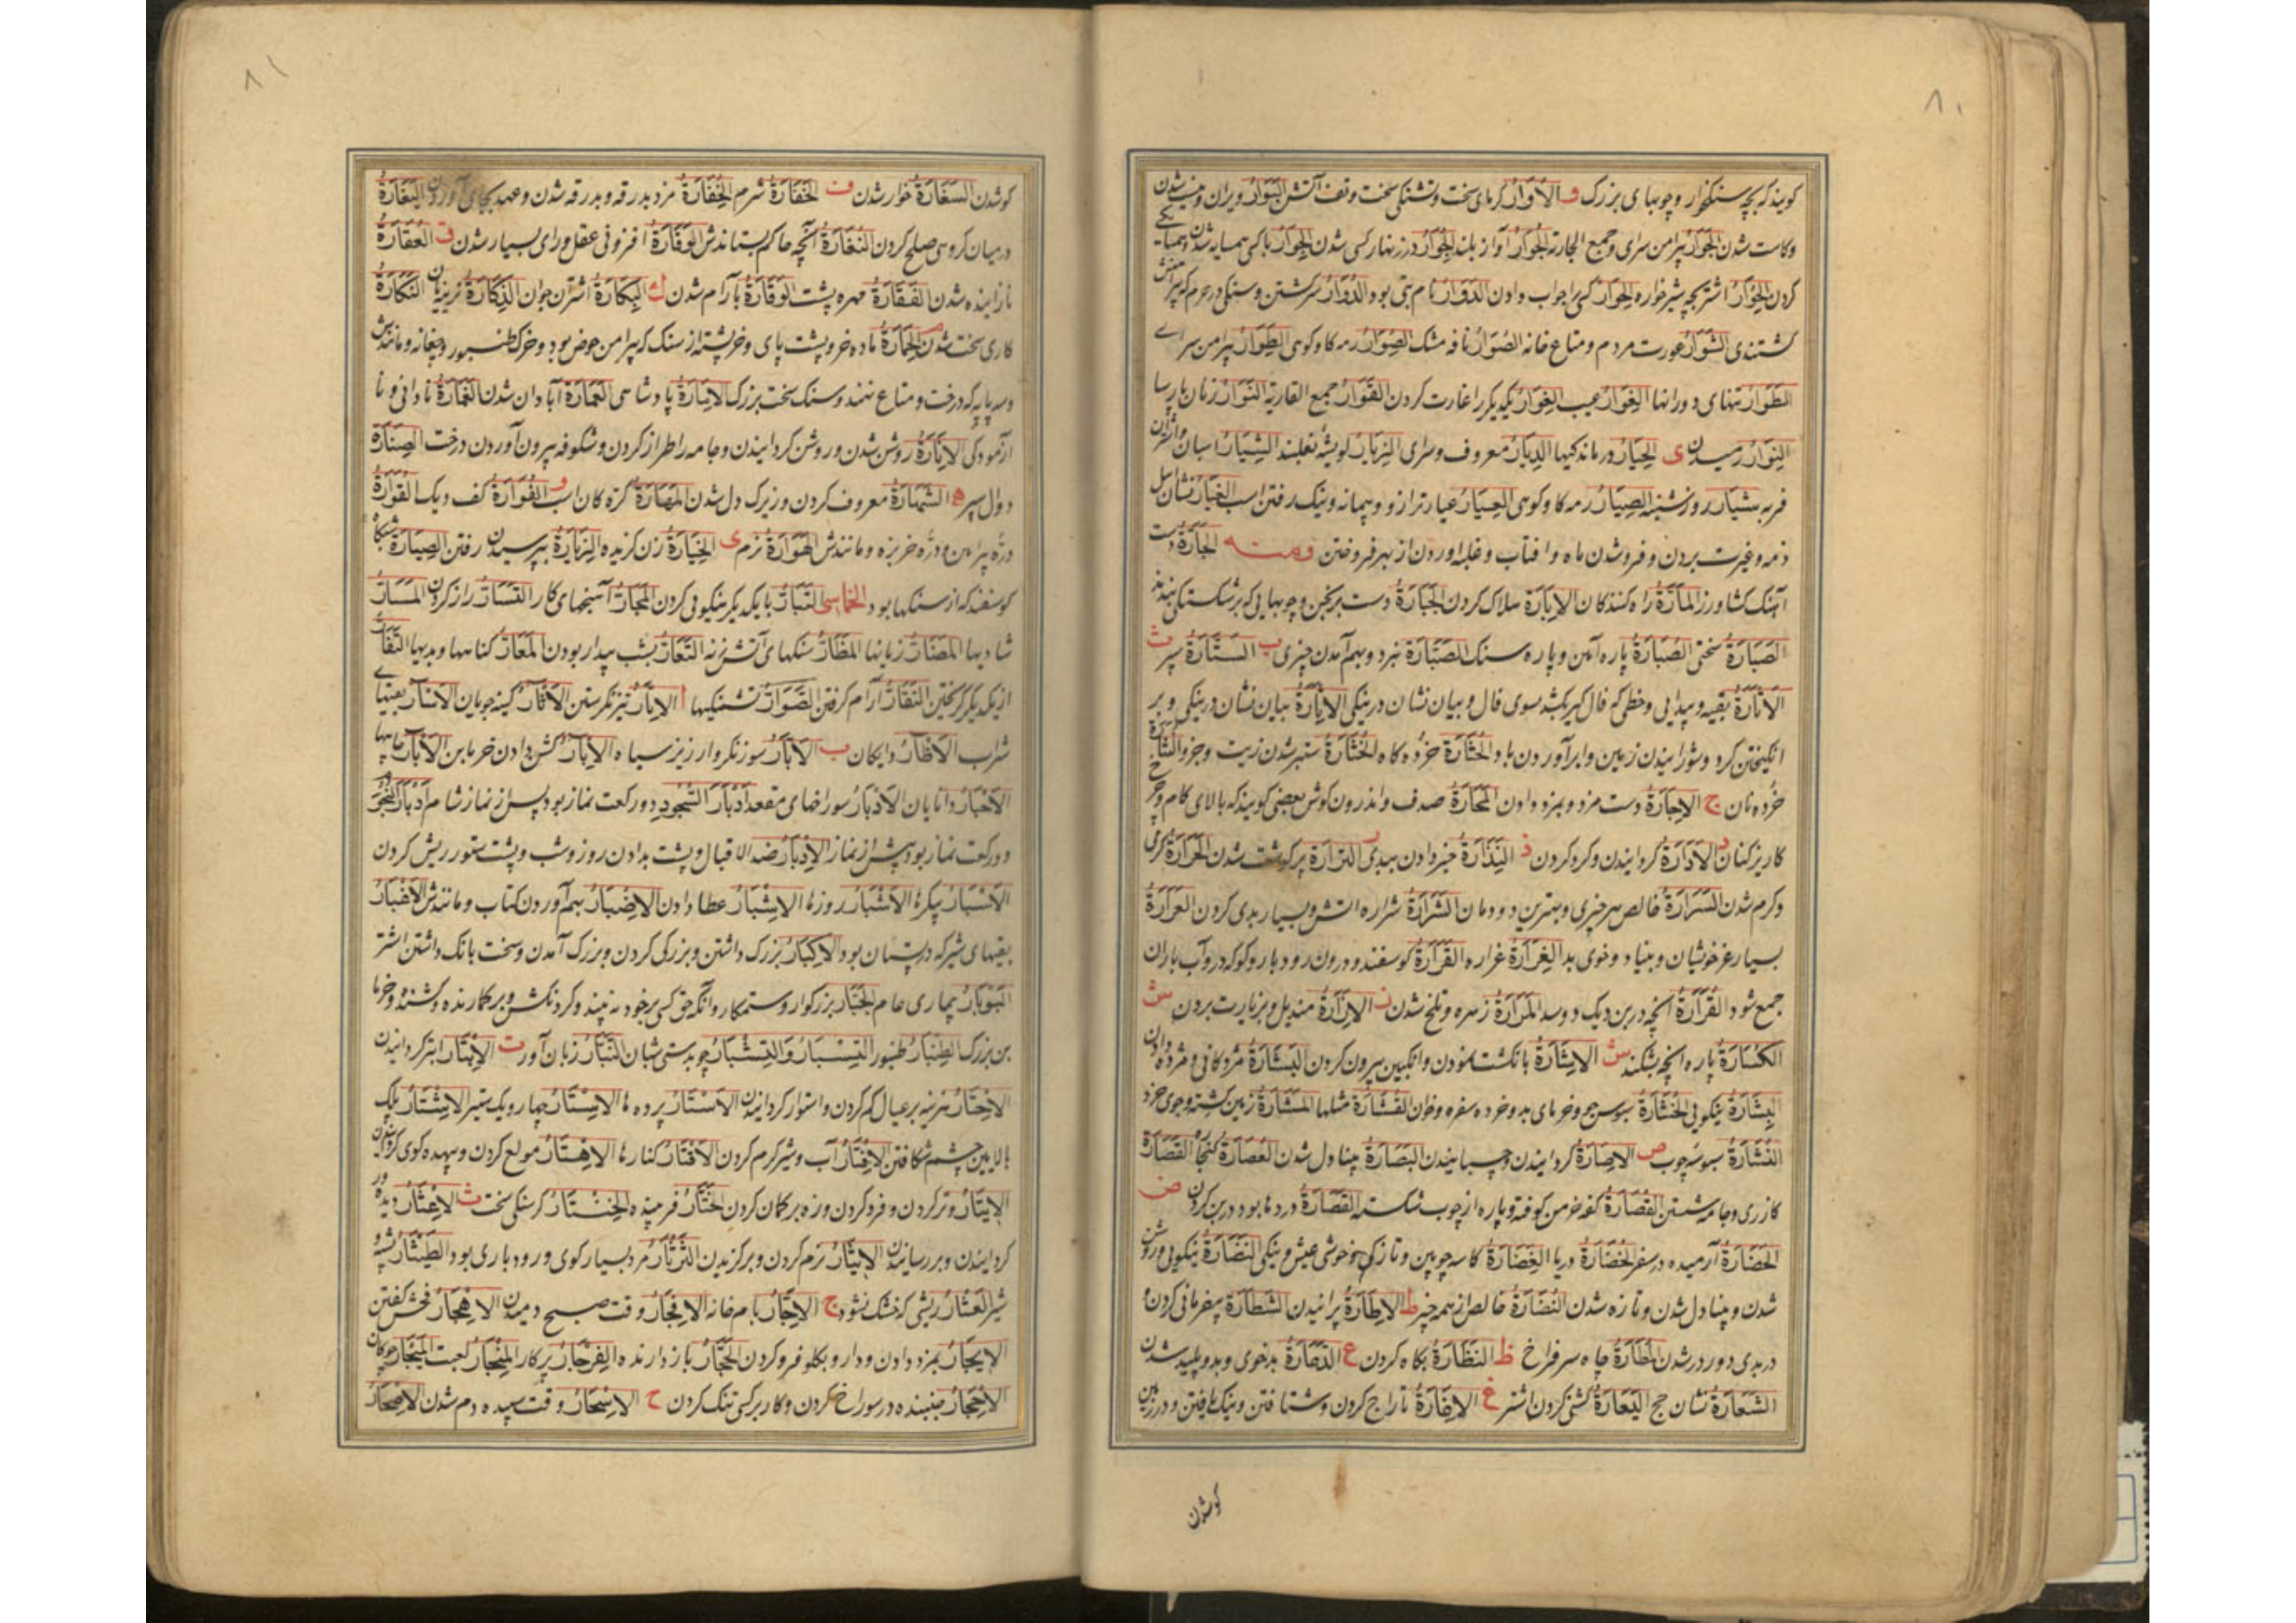 ۸۰
گویند که بچه سنگخوار و چوبهای بزرگ و الاُوَارُ گرمای سخت و تشنگی سخت و تف آتش البَوَارُ ویران و شدن
و کاست شدن الجِوَارُ پیرامن سرای و جمع الجارة الجُوَارُ آواز بلند الجِوَارُ در زنهار کسی شدن الجِوَارُ با کسی همسایه شدن
کردن الحُوَارُ اشتر بچه شیرخواره الحِوَارُ کسی را جواب دادن الدَوَارُ نام بتی بود الدُوَارُ سرگشتن و سنگی در حرم که پیرامنش
گشتندی الشَوَارُ عورت مردم و متاع خانه الصُوَارُ نافه مشک الصِوَارُ رمه گاو کوهی الطَوَارُ پیرامن سرای
الطَوَارُ تنهای دورانها العَوَارُ عیب الغِوَارُ یکدیگر را غارت کردن القَوَارُ جمع القارة النَوَارُ زنان پارسا
النِوَارُ رمیدن ی الحِیَارُ درماندگیها الدِیَارُ معروف و سرای الزِیَارُ لویشه نعلبند الشِیَارُ اسبان
فربه شِیَار روز شنبه الصِیَارُ رمه گاو کوهی العِیَارُ عیار ترازو و پیمانه و نیک رفتن اسب الغِیَارُ نشان اهل
ذمه و غیرت بردن و فروشدن ماه و آفتاب و غله آوردن از بهر فروختن ومنه الجَارَةُ دست
آهنگ کشاورز المَارَّةُ راه کنندگان الاِبَارَةُ هلاک کردن الجِبَارَةُ دست برنجن و چوبهایی که بر شکستگی بندند
الصَبَارَةُ سختی الصُبَارَةُ پاره آهن و پاره سنگ الصَبَارَةُ نبرد و بهم آمدن چیزی ب السِتَارَةُ سپر ث
الاَثَارَةُ بقیه و پیدایی و خطی که فال گیر بکشد سوی فال و بیان نشان در نیکی الاِثَارَةُ بیان نشان در نیکی و بر
انگیختن گرد و شورانیدن زمین و ابر آوردن باد الحُثَارَةُ خرده کاه الخُثَارَةُ ستبر شدن زیت و جز او
خرده نان ج الاِجَارَةُ دست مزد و بمزد دادن المَحَارَةُ صدف و اندرون گوش بعضی گویند که بالای کام و خر
کاریزکنان الاِدَارَةُ گردانیدن و گرد کردن ذ النِذَارَةُ خبر دادن ببدی ر الترَارَةُ پر گوشت شدن الحَرَارَةُ گرمی
و گرم شدن السَرَارَةُ خالص هر چیزی و بهترین دودمان الشَرَارَةُ شراره آتش و بسیار بدی کردن العَرَارَةُ
بسیار عز خویشان و بنیاد و خوی بد الغِرَارَةُ غراره القَرَارَةُ گوسفند و درون رود بار و گو که در و آب باران
جمع شود القُرَارَةُ آنچه در بن دیگ دوسد المَرَارَةُ زهره و تلخ شدن ز الاِزَارَةُ مندیل و بزیارت بردن س
الکُسَارَةُ پاره آنچه بشکند ش الاِشَارَةُ بانگشت نمودن و انگبین بیرون کردن البُشَارَةُ مژدگانی و مژده دادن
البِشَارَةُ نیکویی الخُشَارَةُ سبوس جو و خرمای بد و خرده سفره و خوان القُشَارَةُ مثلها المَشَارَةُ زمین کشته و جوی خرد
النُشَارَةُ سبوسه چوب ص الاِصَارَةُ گردانیدن و چسبانیدن البَصَارَةُ بینا دل شدن العُصَارَةُ کنجاره القِصَارَةُ
گازری و جامه شستن القُصَارَةُ کفه خرمن کوفته و پاره از چوب شکسته القَصَارَةُ دردها بود در بن گردن ض
الحَضَارَةُ آرمیده در سفر الخُضَارَةُ دریا الغَضَارَةُ کاسه چوبین و تازگی و خوشی عیش و نیکی النَضَارَةُ نیکویی و روشن
شدن و بینا دل شدن و تازه شدن النُضَارَةُ خالص از همه چیز ط الاِطَارَةُ پرانیدن الشَطَارَةُ بیفرمانی کردن و
در بدی دور در شدن المَطَارَةُ چاه سر فراخ ظ النَظَارَةُ نگاه کردن ع الدَعَارَةُ بدخوی و بد و پلید شدن
الشِعَارَةُ نشان حج الیَعَارَةُ گشنی کردن اشتر غ الاِغَارَةُ تاراج کردن و شتافتن و نیک تافتن و در زمین
کوشدن
۸۱
کوشدن السَغَارَةُ خوار شدن ف الخَفَارَةُ شرم الخِفَارَةُ مزد بدرقه و بدرقه شدن و عهد بجای آوردن السِفَارَةُ
در میان گروهی صلح کردن النُفَارَةُ آنچه حاکم بستاند الوَفَارَةُ افزونی عقل و رای بسیار شدن ق العَقَارَةُ
نازاینده شدن الفَقَارَةُ مهره پشت الوَقَارَةُ با آرام شدن ك البَکَارَةُ اشتران جوان الذِکَارَةُ نرینان النَکَارَةُ
کاری سخت شدن م الحِمَارَةُ ماده خر و پشت پای و خرپشته از سنگ که پیرامن حوض بود و خرک طنبور و چغانه و مانندش
و سه پایه که درخت و متاع نهند و سنگ سخت بزرگ الاِمَارَةُ پادشاهی العِمَارَةُ آبادان شدن الغَمَارَةُ نادانی و نا
آزمودگی الاِنَارَةُ روشن شدن و روشن گردانیدن و جامه را طراز کردن و شکوفه بیرون آوردن درخت الصِنَارَة
دوال سپر ه الشَهَارَةُ معروف کردن و زیرک دل شدن المَهَارَةُ کره گان اسب و الفُوَارَةُ کف دیگ القُوَارَةُ
دره پیرامن و دره خربزه و مانندش الهَوَارَةُ نرم ی الخِیَارَةُ زن گزیده الزِیَارَةُ بپرسیدن رفتن الصِیَارَةُ
گوسفند که از سنگها بود الخماسی التَبَارُّ با یکدیگر نیکویی کردن المَجَارُّ آهنجهای کار التَسَارُّ راز کردن المَسَارُّ
شادیها المَضَارُّ زیانها المَظَارُّ سنگهای آتش زنه التَعَارُّ بشب بیدار بودن المَعَارُّ گناهها و بدیها التَفَارُّ
از یکدیگر گریختن التَقَارُّ آرام گرفتن الصَوَارُّ تشنگیها ا الاِتآرُ تیز نگرستن الاَثآرُ کینه جویان الاَسْآرُ بقیتهای
شراب الاَظآرُ دایگان ب الاَبَّارُ سوزنگر و ارزیز سیاه الاِبَّارُ گشن دادن خرمابن الاَبآرُ چاهها
الاَحْبَارُ دانایان الاَدْبَارُ سوراخهای مقعد اَدْبَارَ السُجُودِ دو رکعت نماز بود پس از نماز شام اِدْبَارُ النُجُومِ
دو رکعت نماز بود پیش از نماز الاِدْبَارُ ضد الاقبال و پشت بدادن روز و شب و پشت ستور ریش کردن
الاَسْبَارُ پیکرها الاَشْبَارُ روزها الاِشْبَارُ عطا دادن الاِضْبَارُ بهم آوردن کتاب و مانندش الاَغْبَارُ
بقیهای شیر که در پستان بود الاِکْبَارُ بزرگ داشتن و بزرگی کردن و بزرگ آمدن و سخت بانگ داشتن اشتر
البَوْبَارُ بیماری عام الجَبَّارُ بزرگوار و ستمکار و آنکه حق کسی بر خود نه بیند و گردنکش و برگمارنده و کشنده و خرما
بن بزرگ الطِنْبَارُ طنبور التِسْبَارُ وَالتِشْبَارُ چوبدستی شبان النَبَّارُ زبان آور ت الاِبْتَارُ ابتر گردانیدن
الاِحْتَارُ هزینه بر عیال کم کردن و استوار گردانیدن الاَسْتَارُ پرده ها الاِسْتَارُ چهار و یک ستیر الاِشْتَارُ پلک
بالایین چشم شکافتن الاِفْتَارُ آب و شیر گرم کردن الاَقْتَارُ کنارها الاِهْتَارُ مولع کردن و بیهده گوی گردانیدن
الاِیتَارُ وتر کردن و فرد کردن و زه بر کمان کردن الخَتَّارُ فریبنده الخِنْتَارُ گرسنگی سخت ث الاِعْثَارُ دیده ور
گردانیدن و بر رسانیدن الاِیثَارُ نرم کردن و برگزیدن الثَرْثَارُ مرد بسیار گوی و رودباری بود الطَیْثَارُ پشه و
شیر العَثَّارُ ریشی که خشک نشود ج الاِجَّارُ بام خانه الاِفْجَارُ وقت صبح دمیدن الاِهْجَارُ فحش گفتن
الاِیجَارُ بمزد دادن و دارو بگلو فرو کردن الحَجَّارُ باز دارنده الفِرْجَارُ پرگار المِنْجَارُ لعبت المِیْجَارُ چوگان
الاِحْجَارُ جنبنده در سوراخ کردن و کار بر کسی تنگ کردن ح الاَسْحَارُ وقت سپیده دم شدن الاِصْحَارُ